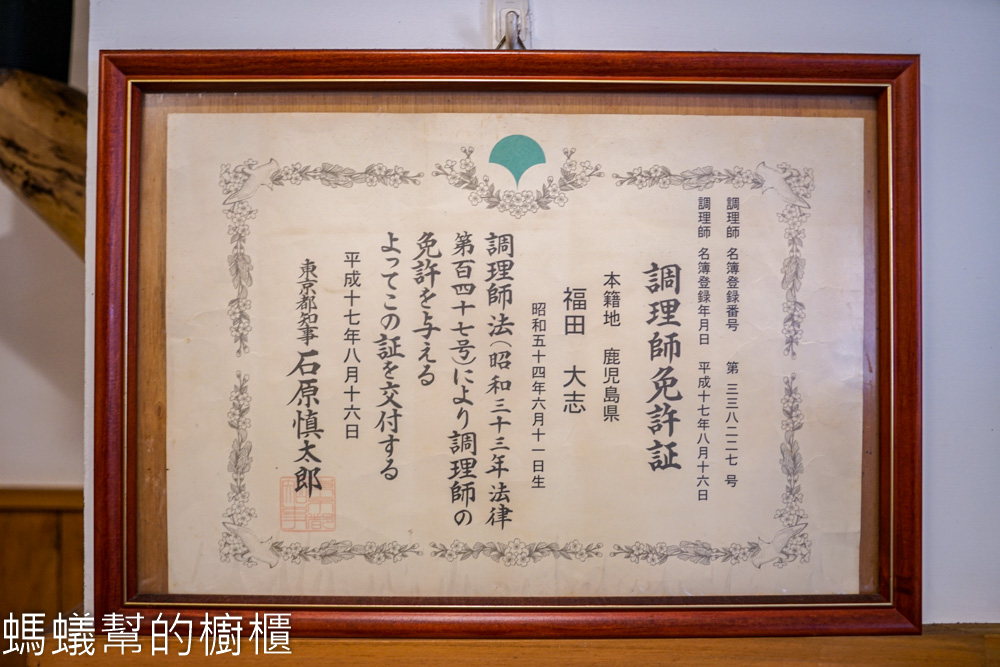 調理師 名簿登録番号 第 三三八二二七 号
調理師 名簿登録年月日 平成十七年八月十六日
調理師免許証
本籍地 鹿児島県
福田 大志
昭和五十四年六月十一日生
調理師法(昭和三十三年法律
第百四十七号)により調理師の
免許を与える
よってこの証を交付する
平成十七年八月十六日
東京都知事 石原慎太郎
螞蟻幫的櫥櫃